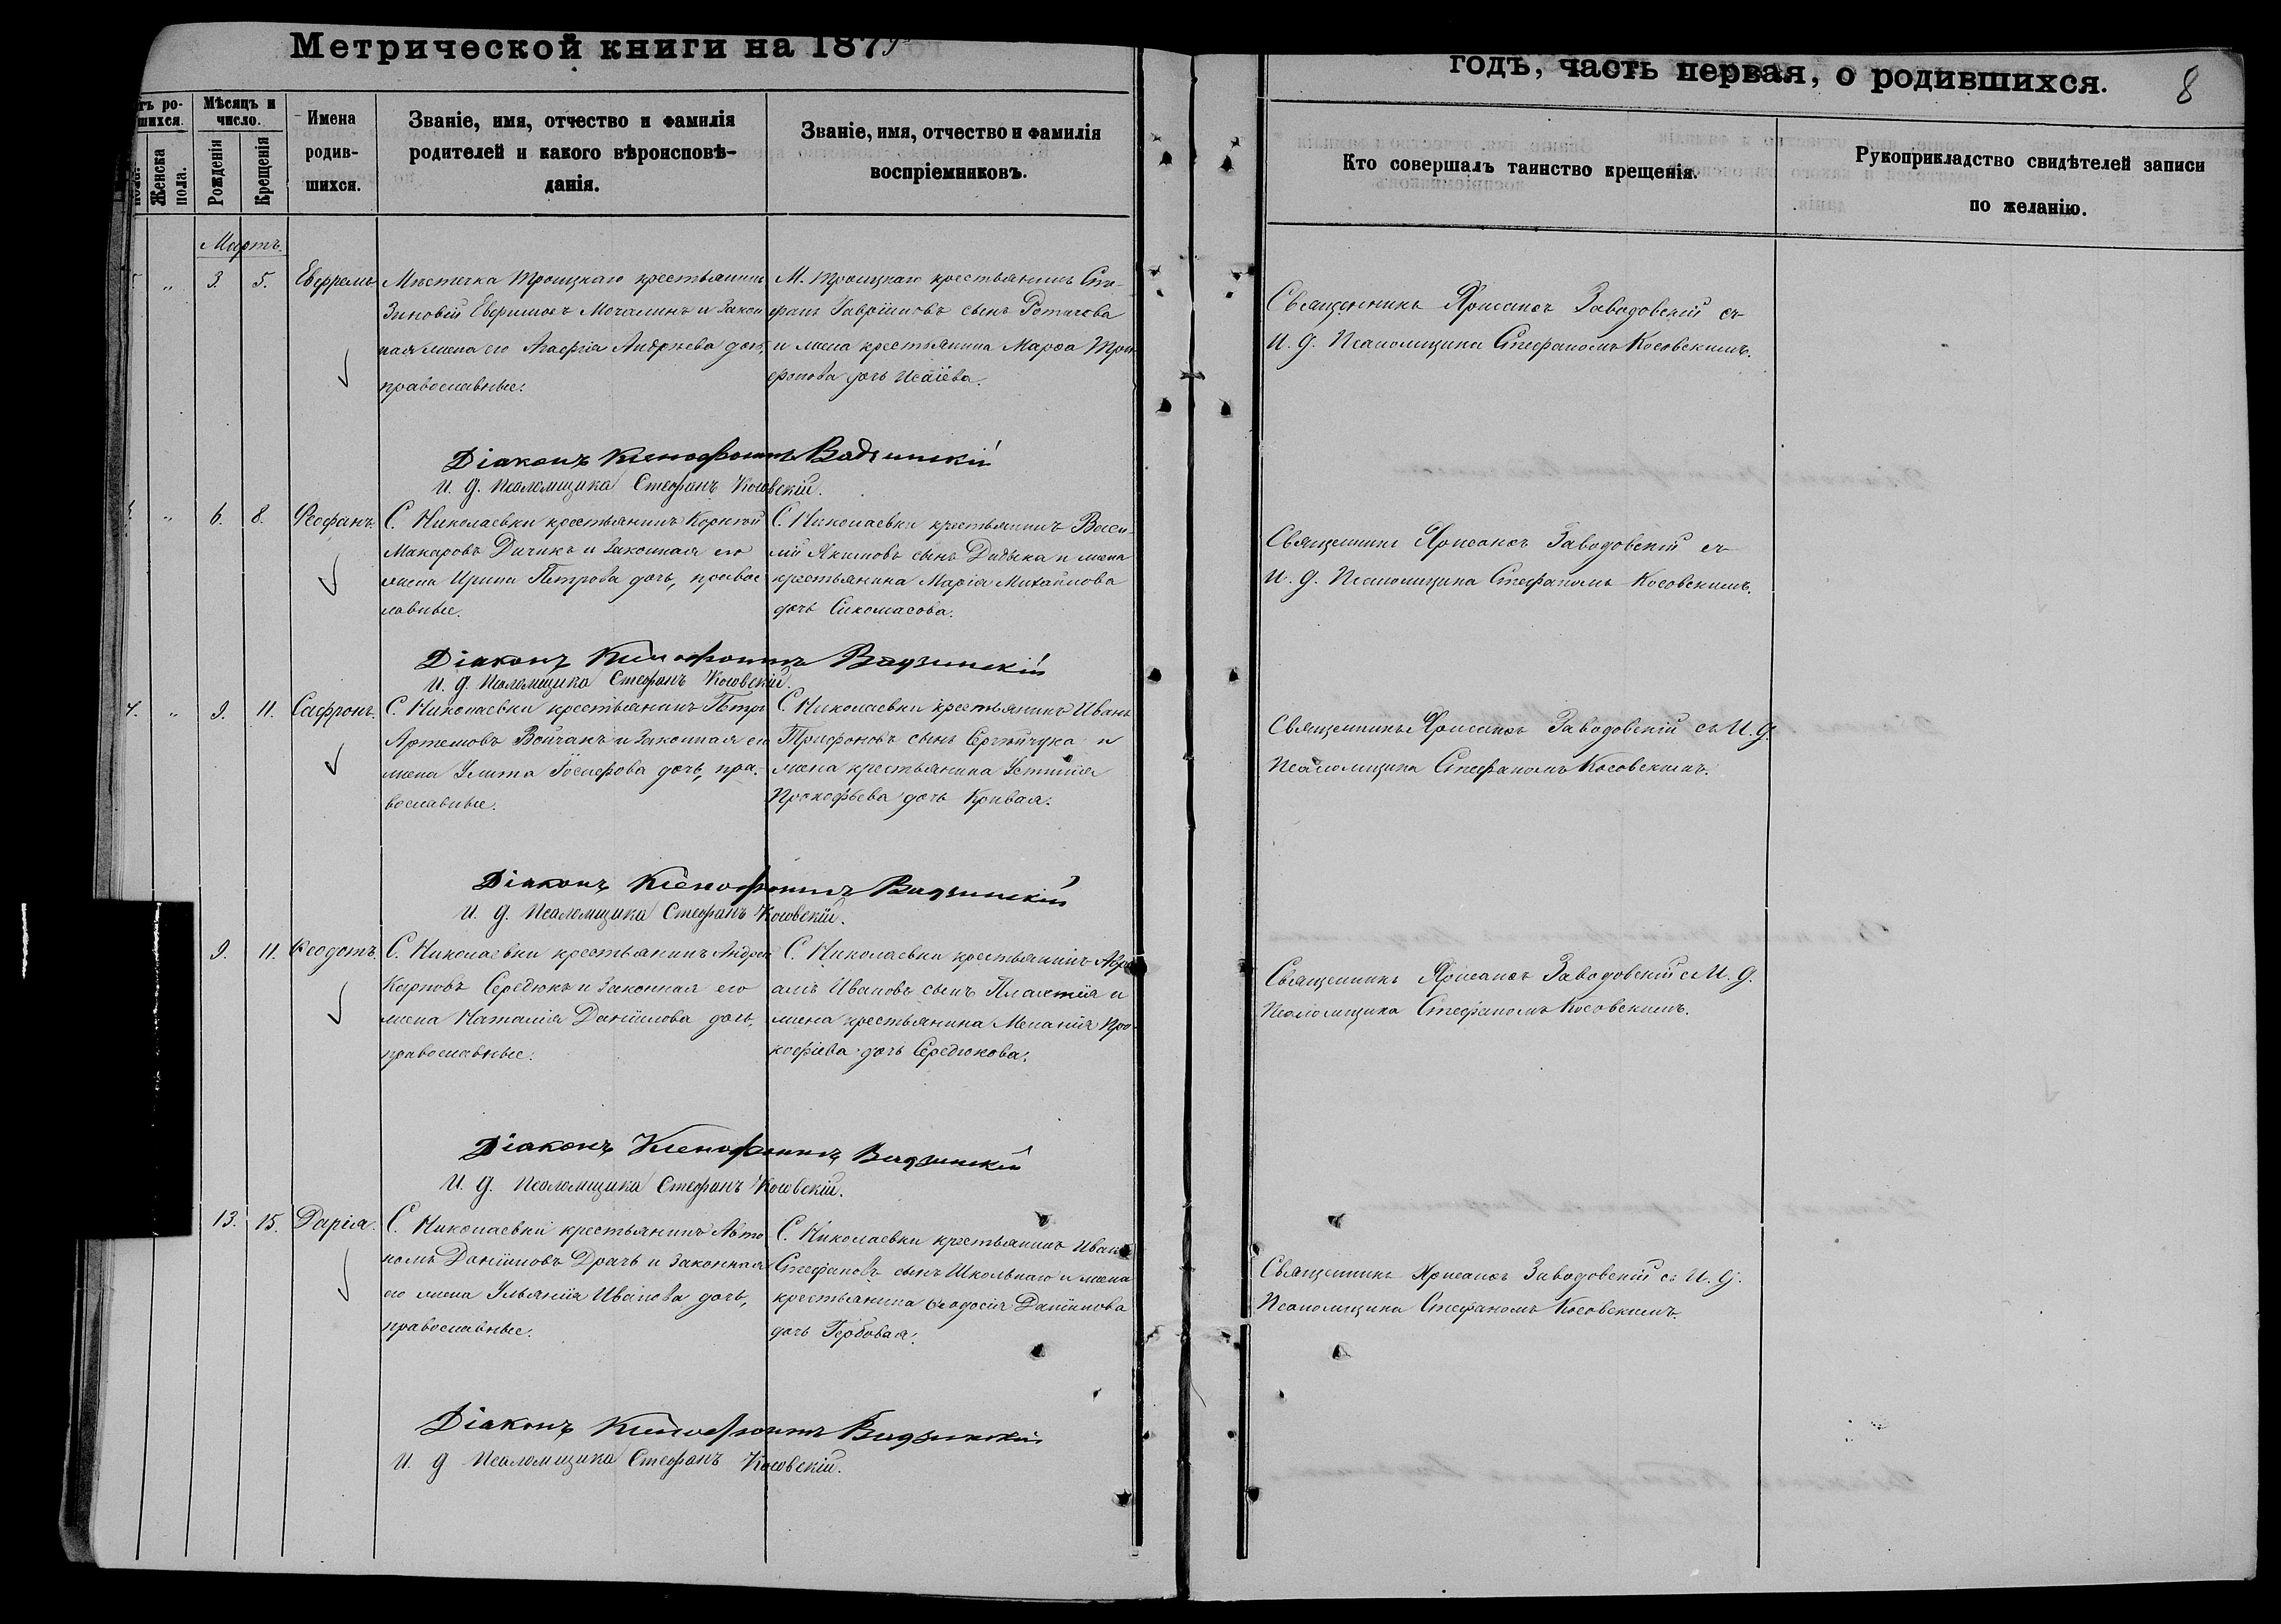 Метрической книги на 1879
годъ, часть первая, о родившихся.
8
Мѣсяцъ и
число.
Женска
пола.
Рожденія
Крещенія
Имена
родив-
шихся.
Званіе, имя, отчество и фамилія
родителей и какого вѣроисповѣ-
данія.
Званіе, имя, отчество и фамилія
воспріемниковъ.
Кто совершалъ таинство крещенія.
Рукоприкладство свидѣтелей записи
по желанію.
Мартъ.
„ 3. 5. Евфремъ
Мѣстечка Троицкаго крестьянинъ
Зиновій Евфимовъ Мочалинъ и закон
ная жена его Агафія Андрѣева дочь,
православные.
М. Троицкаго крестьянинъ Сте-
фанъ Гавріиловъ сынъ
и жена крестьянина Марѳа Три
фонова дочь Исаіева.
Священникъ Заводовскій съ
И. д. Псаломщика Стефаномъ Косовскимъ.
Діаконъ Ксенофонтъ Вадзинскій
И. д. Псаломщика Стефанъ Косовскій.
„ 6. 8. Ѳеофанъ.
С. Николаевки крестьянинъ Корнѣй
Макаровъ Дичикъ и законная его
жена Ирина Петрова дочь, правос
лавные.
С. Николаевки крестьянинъ Васи-
лій Якимовъ сынъ Дидыка и жена
крестьянина Марія Михайлова
дочь Сикомасова.
Священникъ Заводовскій съ
И. д. Псаломщика Стефаномъ Косовскимъ.
Діаконъ Ксенофонтъ Вадзинскій
И. д. Псаломщика Стефанъ Косовскій.
„ 9. 11. Сафронъ.
С. Николаевки крестьянинъ Петръ
Артемовъ Войчакъ и законная его
жена Улита Іосифова дочь, пра-
вославные.
С. Николаевки крестьянинъ Иванъ
Трифоновъ сынъ Сергѣйчука и
жена крестьянина Устинія
Прокофьева дочь Кривая.
Священникъ Заводовскій съ И. д.
Псаломщика Стефаномъ Косовскимъ.
Діаконъ Ксенофонтъ Вадзинскій
И. д. Псаломщика Стефанъ Косовскій.
9. 11. Ѳеодотъ.
С. Николаевки крестьянинъ Андрей
Карповъ Середюкъ и законная его
жена Наталія Даніилова дочь,
православные.
С. Николаевки крестьянинъ Авра
амъ Ивановъ сынъ Плахтія и
жена крестьянина Меланія Про-
кофіева дочь Середюкова.
Священникъ Заводовскій съ И. д.
Псаломщика Стефаномъ Косовскимъ.
Діаконъ Ксенофонтъ Вадзинскій
И. д. Псаломщика Стефанъ Косовскій.
13. 15. Дарія.
С. Николаевки крестьянинъ Авто
номъ Даніиловъ Драчъ и законная
его жена Ульянія Иванова дочь,
православные.
С. Николаевки крестьянинъ Иванъ
Стефановъ сынъ Школьнаго и жена
крестьянина Ѳеодосія Даніилова
дочь Гербовая.
Священникъ Заводовскій съ И. д.
Псаломщика Стефаномъ Косовскимъ.
Діаконъ Ксенофонтъ Вадзинскій
И. д Псаломщика Стефанъ Косовскій.